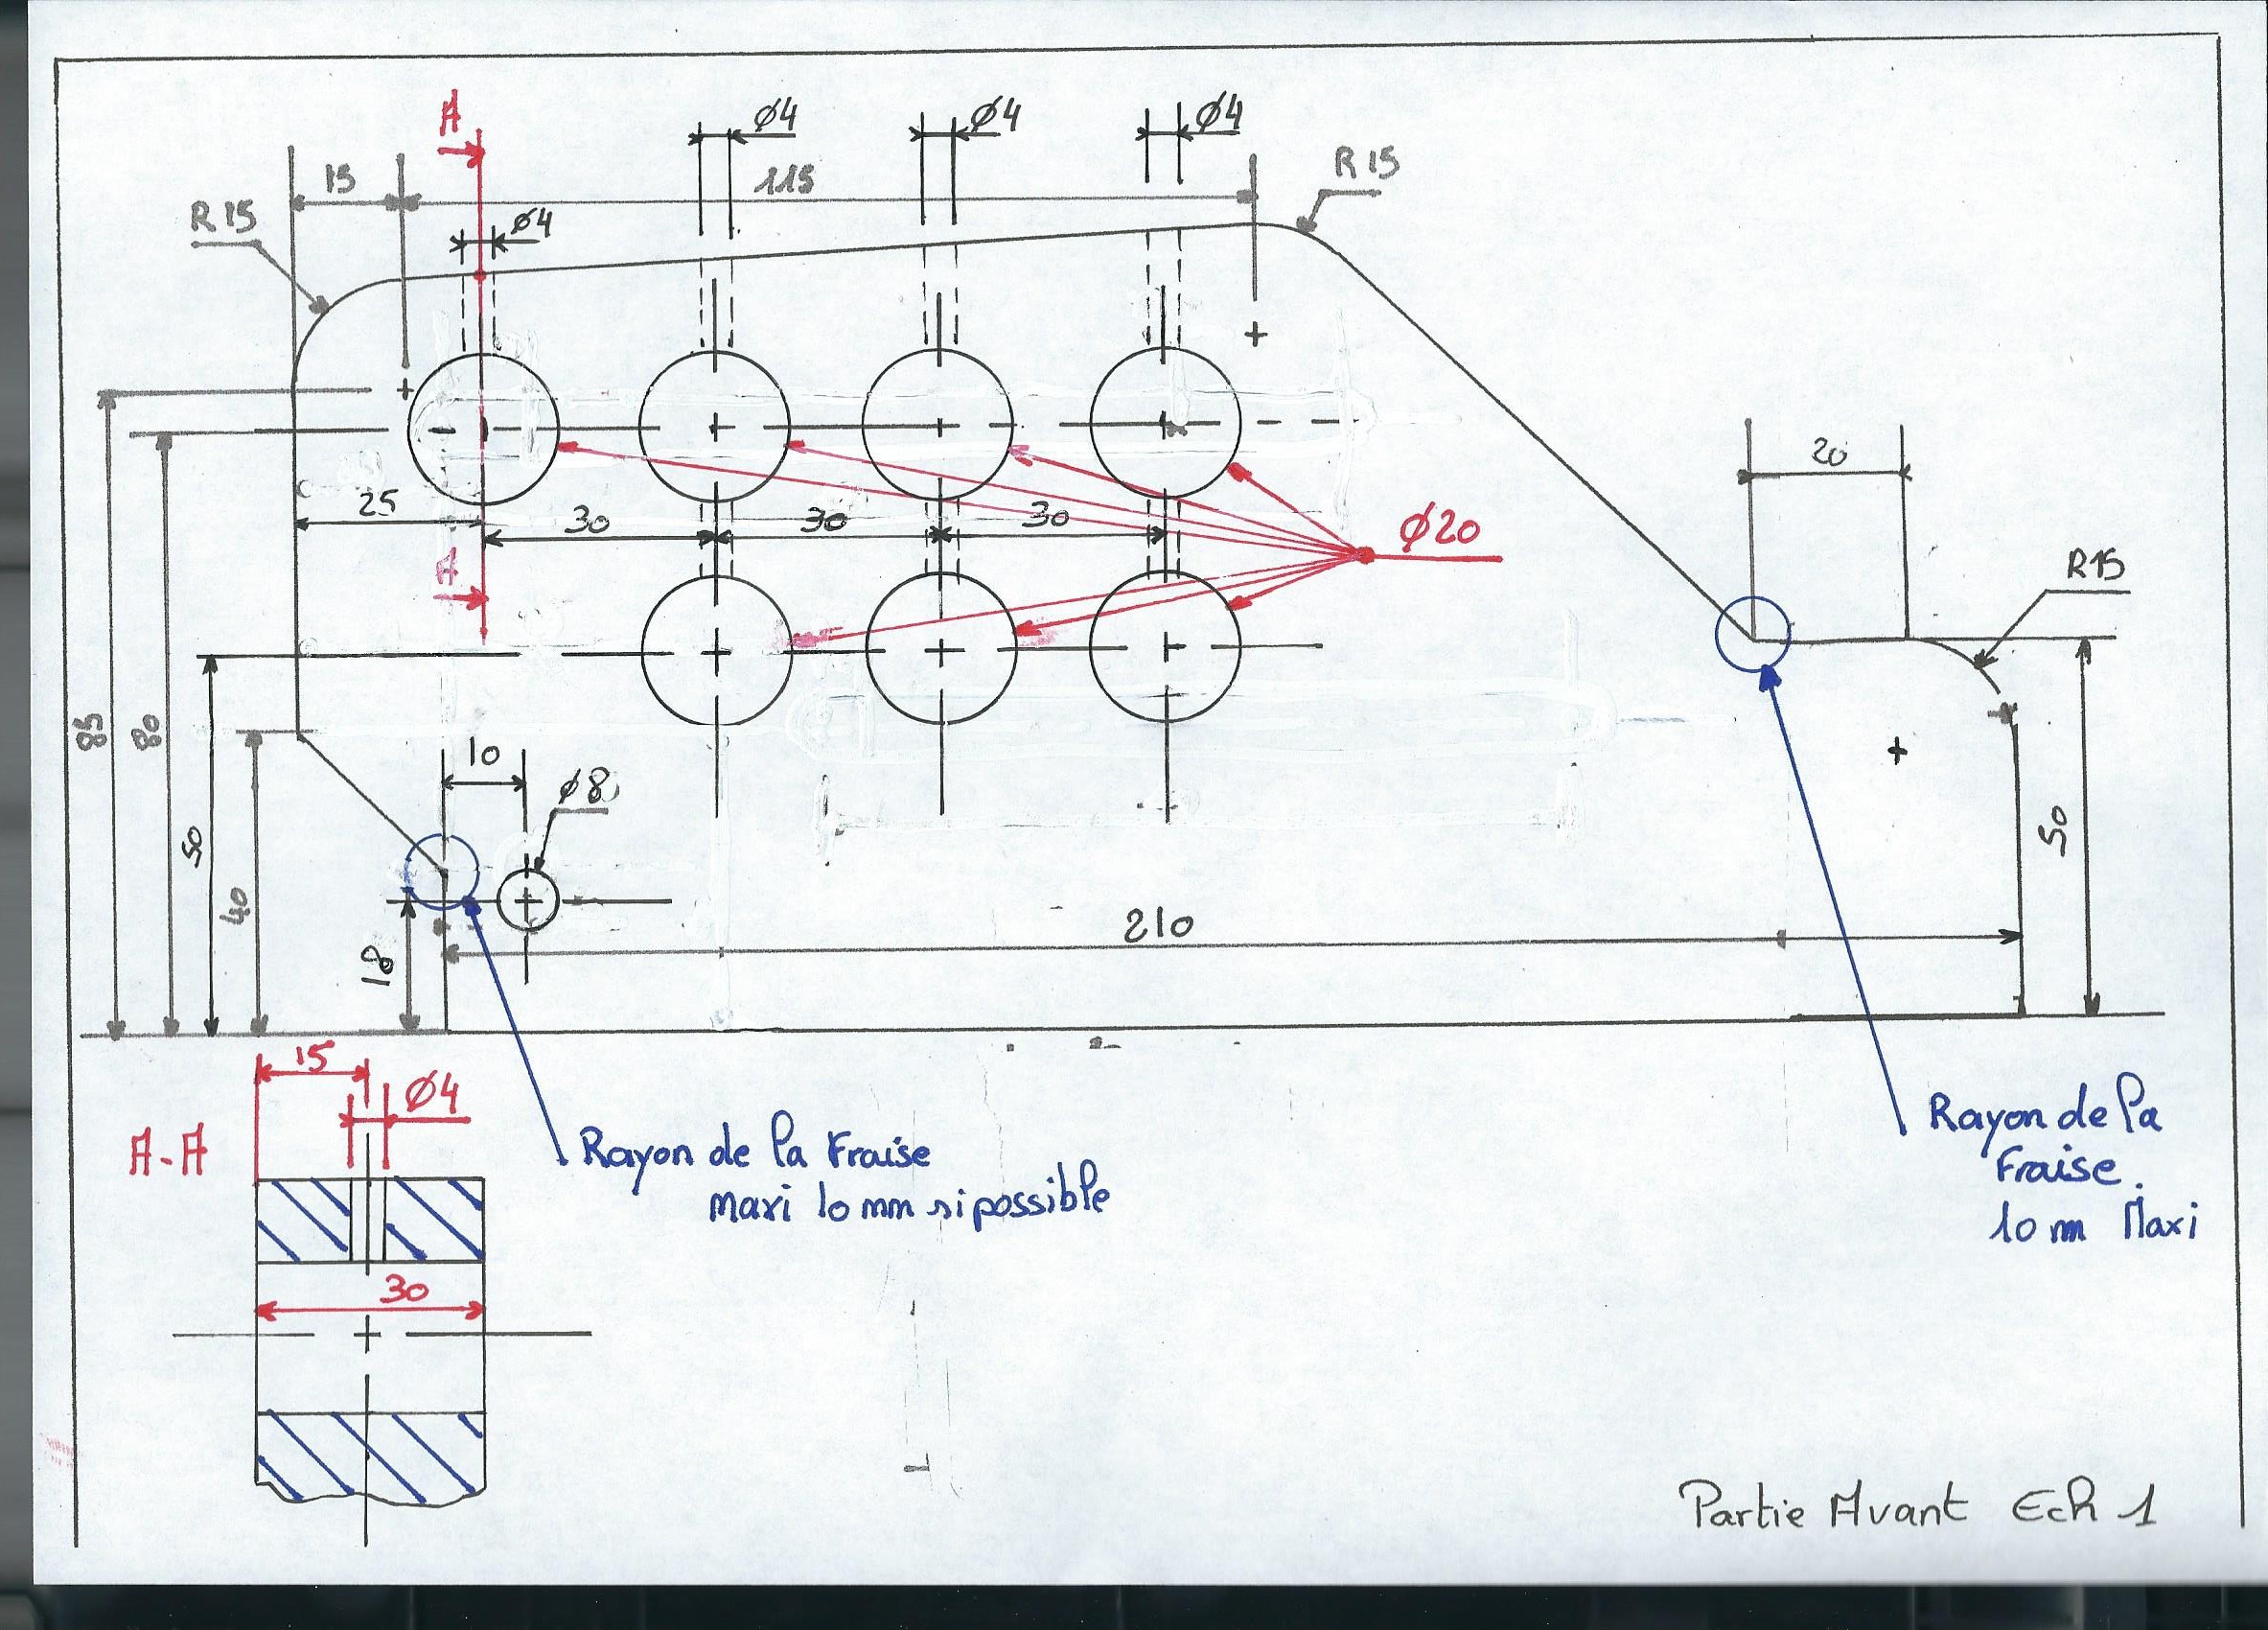 A
ø4
ø4
ø4
15
115
R 15
R 15
ø4
25
30
30
30
ø20
20
R15
85
80
50
40
18
10
ø8
210
50
A
15
ø4
A-A
30
Rayon de la Fraise
maxi 10 mm si possible
Rayon de la
Fraise.
10 m Maxi
Partie Avant Ech 1